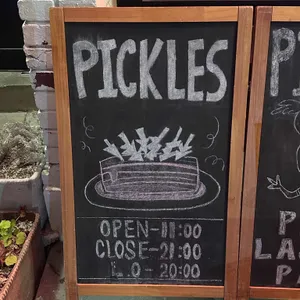 PICKLES
OPEN-11:00
CLOSE-21:00
L.O-20:00